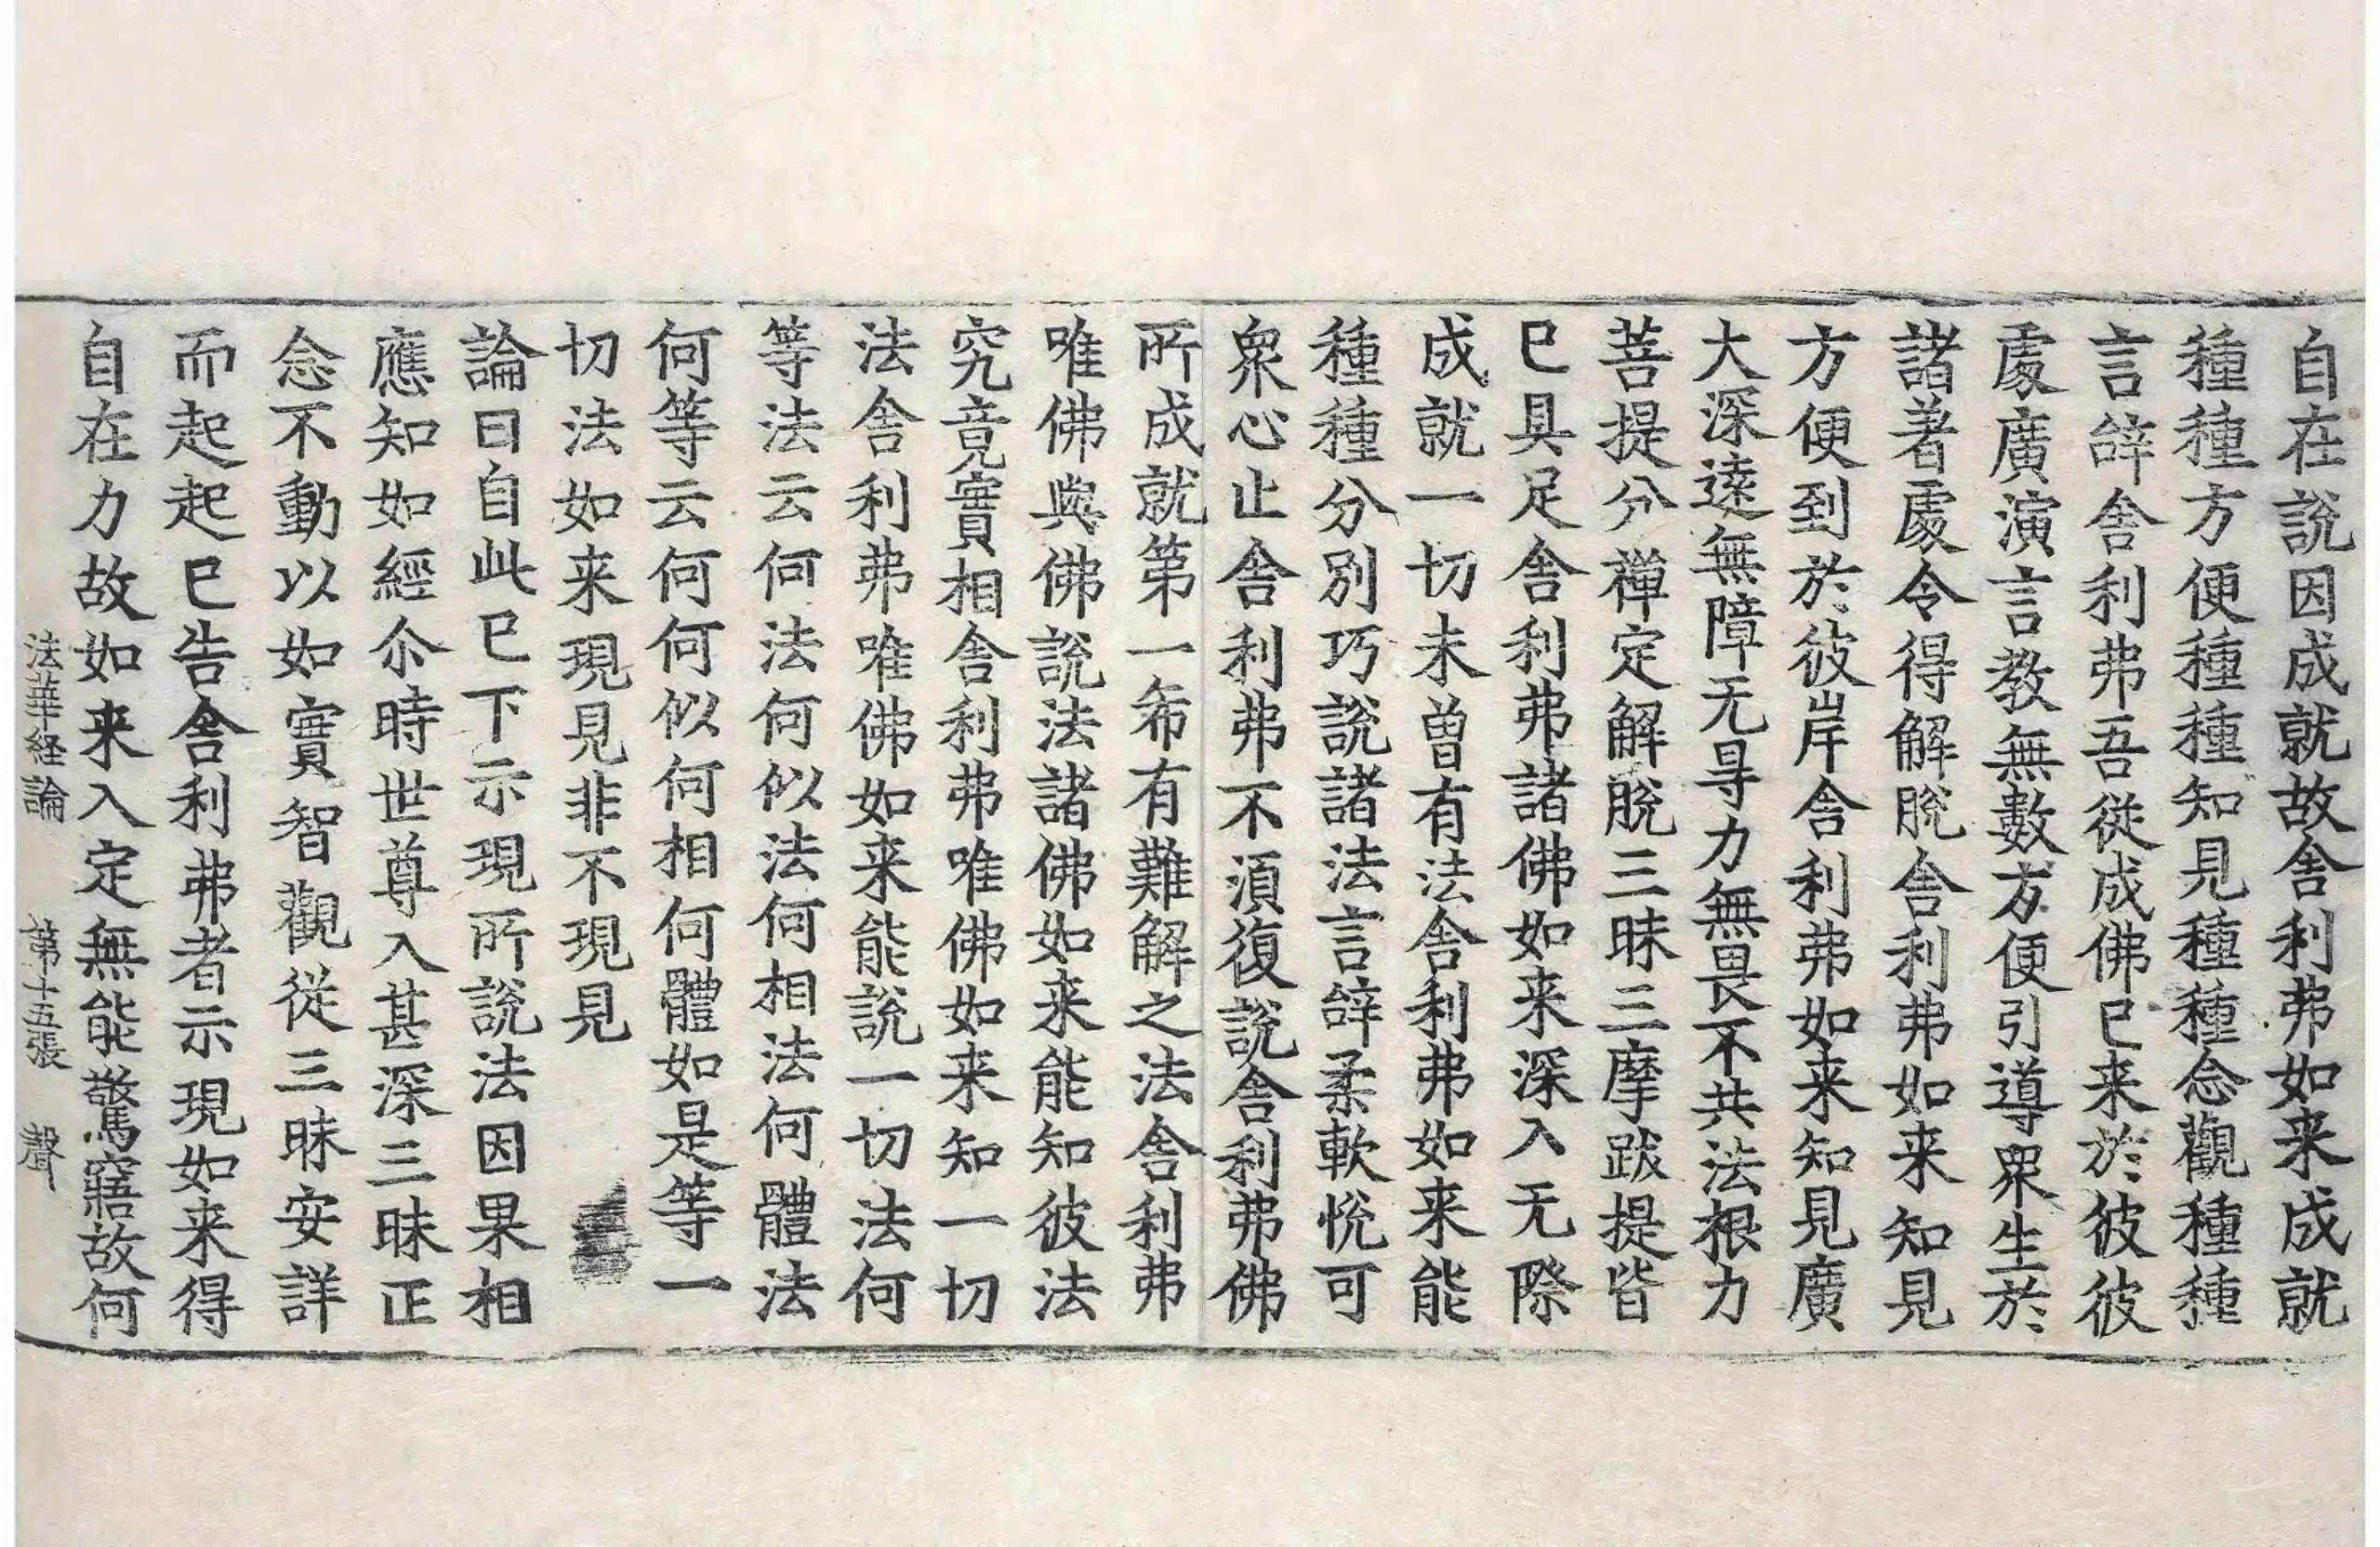 自在說因成就故舎利弗如来成就
種種方便種種知見種種念觀種種
言辝舎利弗吾從成佛已来於彼彼
處廣演言教無數方便引導眾生於
諸著處令得解脫舎利弗如来知見
方便到於彼岸舎利弗如来知見廣
大深遠無障无㝵力無畏不共法根力
菩提分禅定解脫三昧三摩跋提皆
已具足舎利弗諸佛如来深入无際
成就一切未曽有法舎利弗如来能
種種分別巧說諸法言辝柔軟悅可
眾心止舎利弗不湏復說舎利弗佛
所成就第一希有難解之法舎利弗
唯佛與佛說法諸佛如来能知彼法
究竟實相舎利弗唯佛如来知一切
法舎利弗唯佛如来能說一切法何
等法云何法何似法何相法何體法
何等云何何似何相何體如是等一
切法如来現見非不現見
論曰自此已下示現所說法因果相
應知如經尒時世尊入甚深三昧正
念不動以如實智觀從三昧安詳
而起起已告舎利弗者示現如来得
自在力故如来入定無能驚寤故何
法華経論　第十五張　聲